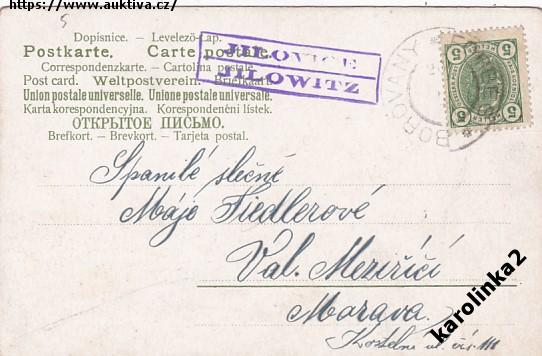 https://www.auktiva.cz/
5
Dopisnice. — Levelező-Lap.
Postkarte. — Carte postale.
Correspondenzkarte. — Cartolina postale.
Post card. — Weltpostverein. — Briefkaart.
Union postale universelle. Unione postale universale.
Karta korespondencyjna. Korespondenční lístek.
ОТКРЫТОЕ ПИСЬМО.
Brefkort. — Brevkort. — Tarjeta postal.
JILOVICE
JILOWITZ
BOROVANY
5 5
5 5
Spanilé slečně
Máje Fiedlerové
Val. Meziříčí
Morava.
karolinka2